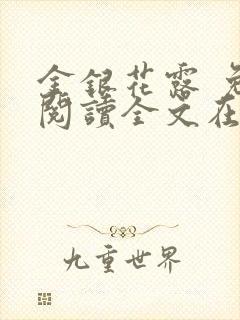 金銀花露 免
閱讀全文在
九重世界